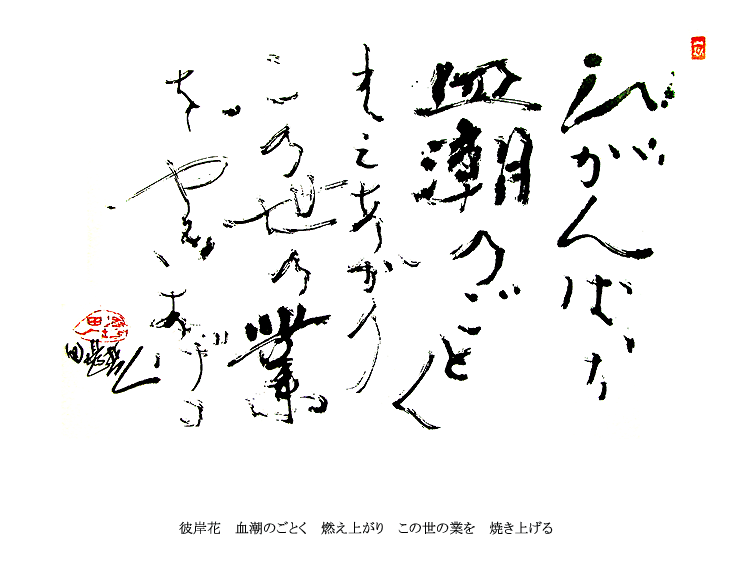 ひがんばな
血潮のごとく
もえあがり
この世の業
を やきあげる
彼岸花　血潮のごとく　燃え上がり　この世の業を　焼き上げる